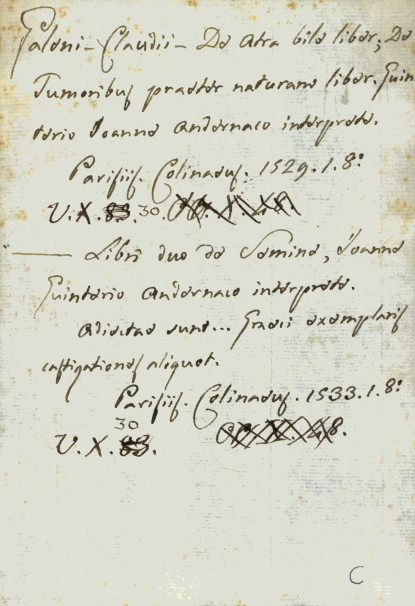 Galeni - Claudii - De Atra bile liber; De
Tumoribus praeter naturam liber. Guin
terio Joanne Andernaco interprete.
Parisiis. Colinaeus. 1529. 1. 8º
V. X. 30.
——— Libri duo de Semine, Joanne
Guinterio Andernaco interprete.
Adiectae sunt... Graeci exemplaris
castigationes aliquot.
Parisiis. Colinaeus. 1533. 1. 8º
30
V. X.
C